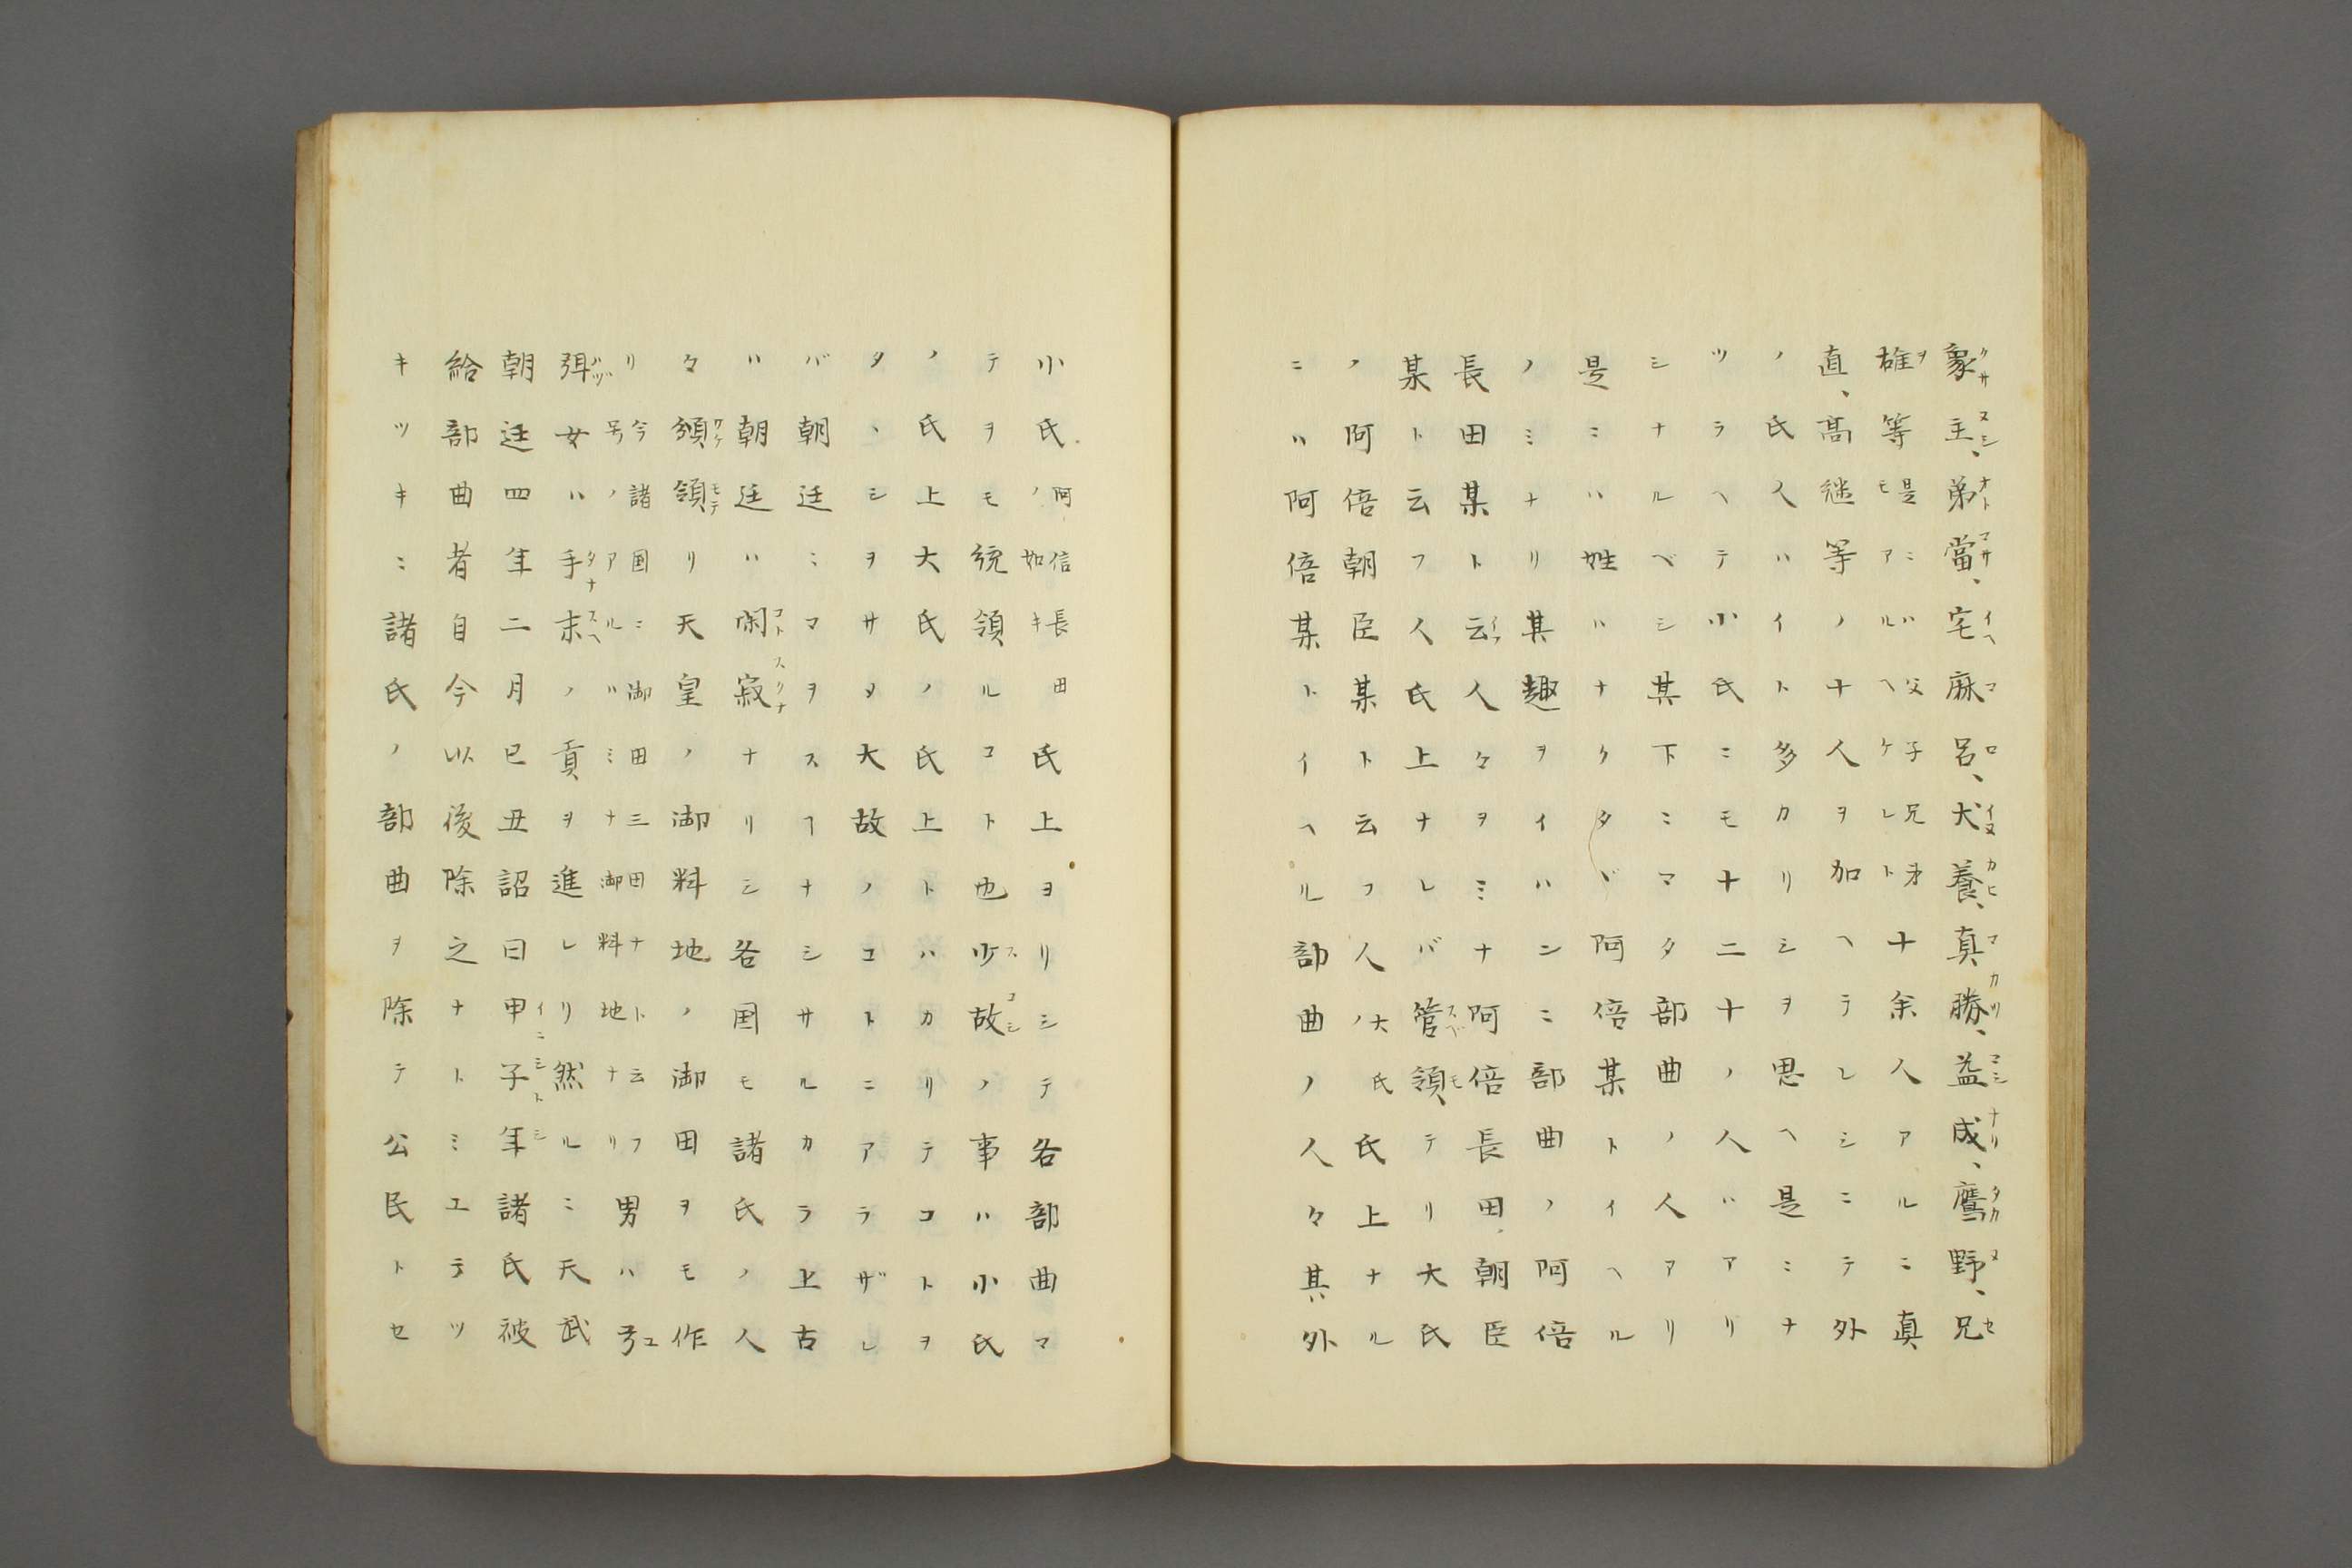 象主、弟當、宅麻呂、犬養、真勝、益成、鷹野、兄
雄等是ニハ父子兄弟モアルヘケレト十余人アルニ真
直、高継等ノ十人ヲ加ヘテレシニテ外
ノ氏人ハイト多カリシヲ思ヘ是ニナ
ツラヘテ小氏ニモ十二十ノ人ハアリ
シナルベシ其下ニマタ部曲ノ人アリ
是ニハ姓ハナクタヾ阿倍某トイヘル
ノミナリ其趣ヲイハンニ部曲ノ阿倍
長田某ト云人々ヲミナ阿倍長田朝臣
某ト云フ人氏上ナレバ管領テリ大氏
ノ阿倍朝臣某ト云フ人大氏ノ氏上ナル
ニハ阿倍某トイヘル部曲ノ人々其外
小氏阿倍長田ノ如キ氏上ヲリシテ各部曲マ
テヲモ統領ルコト也少故ノ事ハ小氏
ノ氏上大氏ノ氏上トハカリテコトヲ
タヽシヲサタメ大故ノコトニアラザレ
バ朝廷ニマヲスヿナシサルカラ上古
ハ朝廷ハ閑寂ナリシ各国モ諸氏ノ人
々頒領リ天皇ノ御料地ノ御田ヲモ作
リ今諸国ニ御田三田ナト云フ号ノアルハミナ御料地ナリ男ハ弓
弭女ハ手末ノ貢ヲ進レリ然ルニ天武
朝廷四年二月已丑詔曰甲子年諸氏被
給部曲者自今以後除之ナトミエテツ
キツキニ諸氏ノ部曲ヲ除テ公民トセ